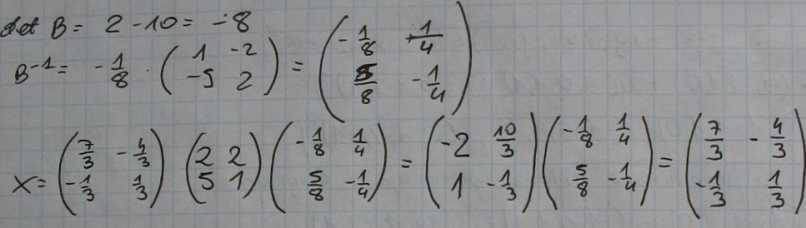 det B = 2 - 10 = -8
B⁻¹ = -1/8 · (1 -2; -5 2) = (-1/8 +1/4; 5/8 -1/4)
X = (7/3 -4/3; -1/3 1/3) (2 2; 5 1) (-1/8 1/4; 5/8 -1/4) = (-2 10/3; 1 -1/3) (-1/8 1/4; 5/8 -1/4) = (7/3 -4/3; -1/3 1/3)